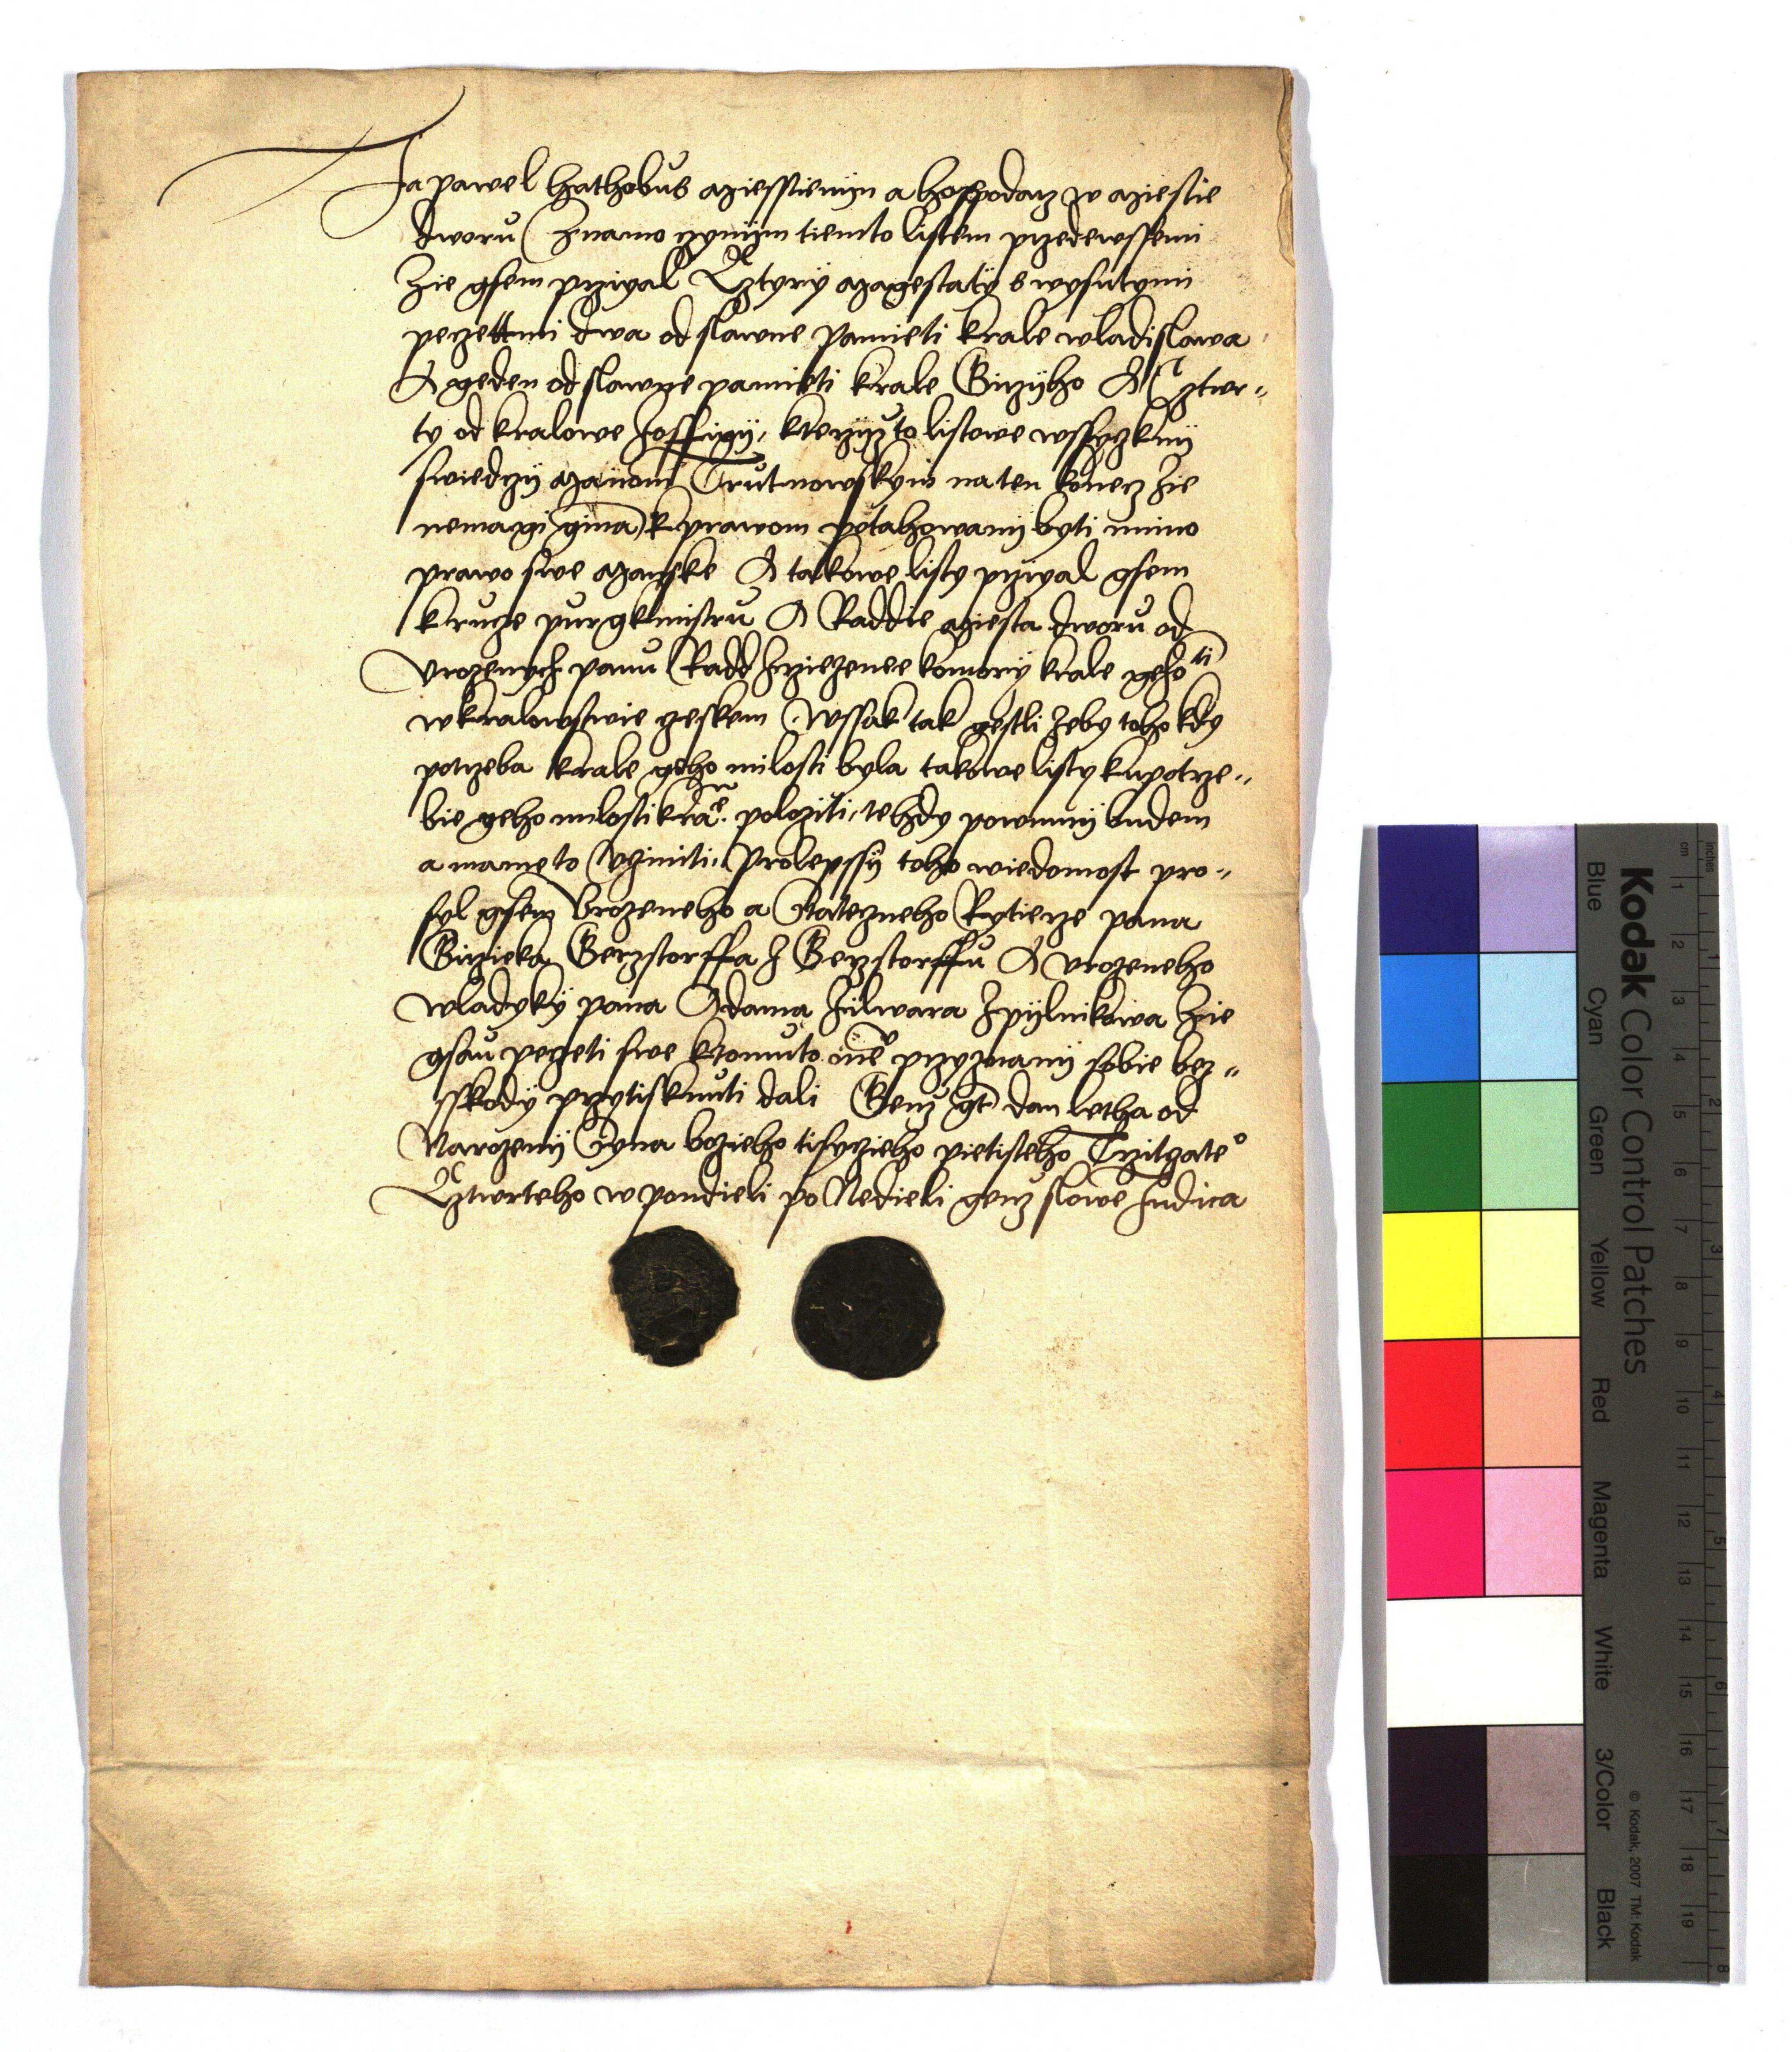 Ja pawel hathobus miesstienijn a hospodarz w miestie
dworu Znamo czynijm tiemto listem przedewssemi
Zie gsem przigal Cztyrÿ magestatÿ s wysutymi
peczettmi dwa od slawne pamieti krale wladislawa
A geden od slawne pamieti krale Girzijho A Cztwr„
ty od kralowe Zoffigij, kterzyzto listowe wssyczknij
swiedczij manom Trutnowskym na ten konecz Zie
nemagi ginam k prawom potahowanij byti mimo
prawo swe manske A takowe listy przigal gsem
k rucze purgkmistru A Raddie miesta dworu od
Urozenych panu Radd Zrziezenee komorÿ krale geho mti
w kralowstwie czeskem Wssak tak gestli zeby toho kdy
potrzeba krale geho milosti byla takowe listy ku potrze„
bie geho milosti kra poloziti, tehdy powinnij budem
a mame to Ucziniti. Pro lepssij toho wiedomost pro„
syl gsem Urozeneho a Stateczneho Rytierze pana
Girzieka Gerzstorffa z Gerzstorffu A urozeneho
wladykÿ pana Adama Zilwara Z pijlnikowa Zie
gsau peczeti swe k tomuto me przyznanij sobie bez„
sskody przytisknuti dali Genz gt dan letha od
Narozenij Syna bozieho tisycieho pietisteho Trzitczateo
Cztwrteho w pondieli po Nedieli genz slowe Judica
Kodak Color Control Patches
Blue Cyan Green Yellow Red Magenta White 3/Color Black
© Kodak, 2007 TM: Kodak
inches 1 2 3 4 5 6 7 8
cm 1 2 3 4 5 6 7 8 9 10 11 12 13 14 15 16 17 18 19